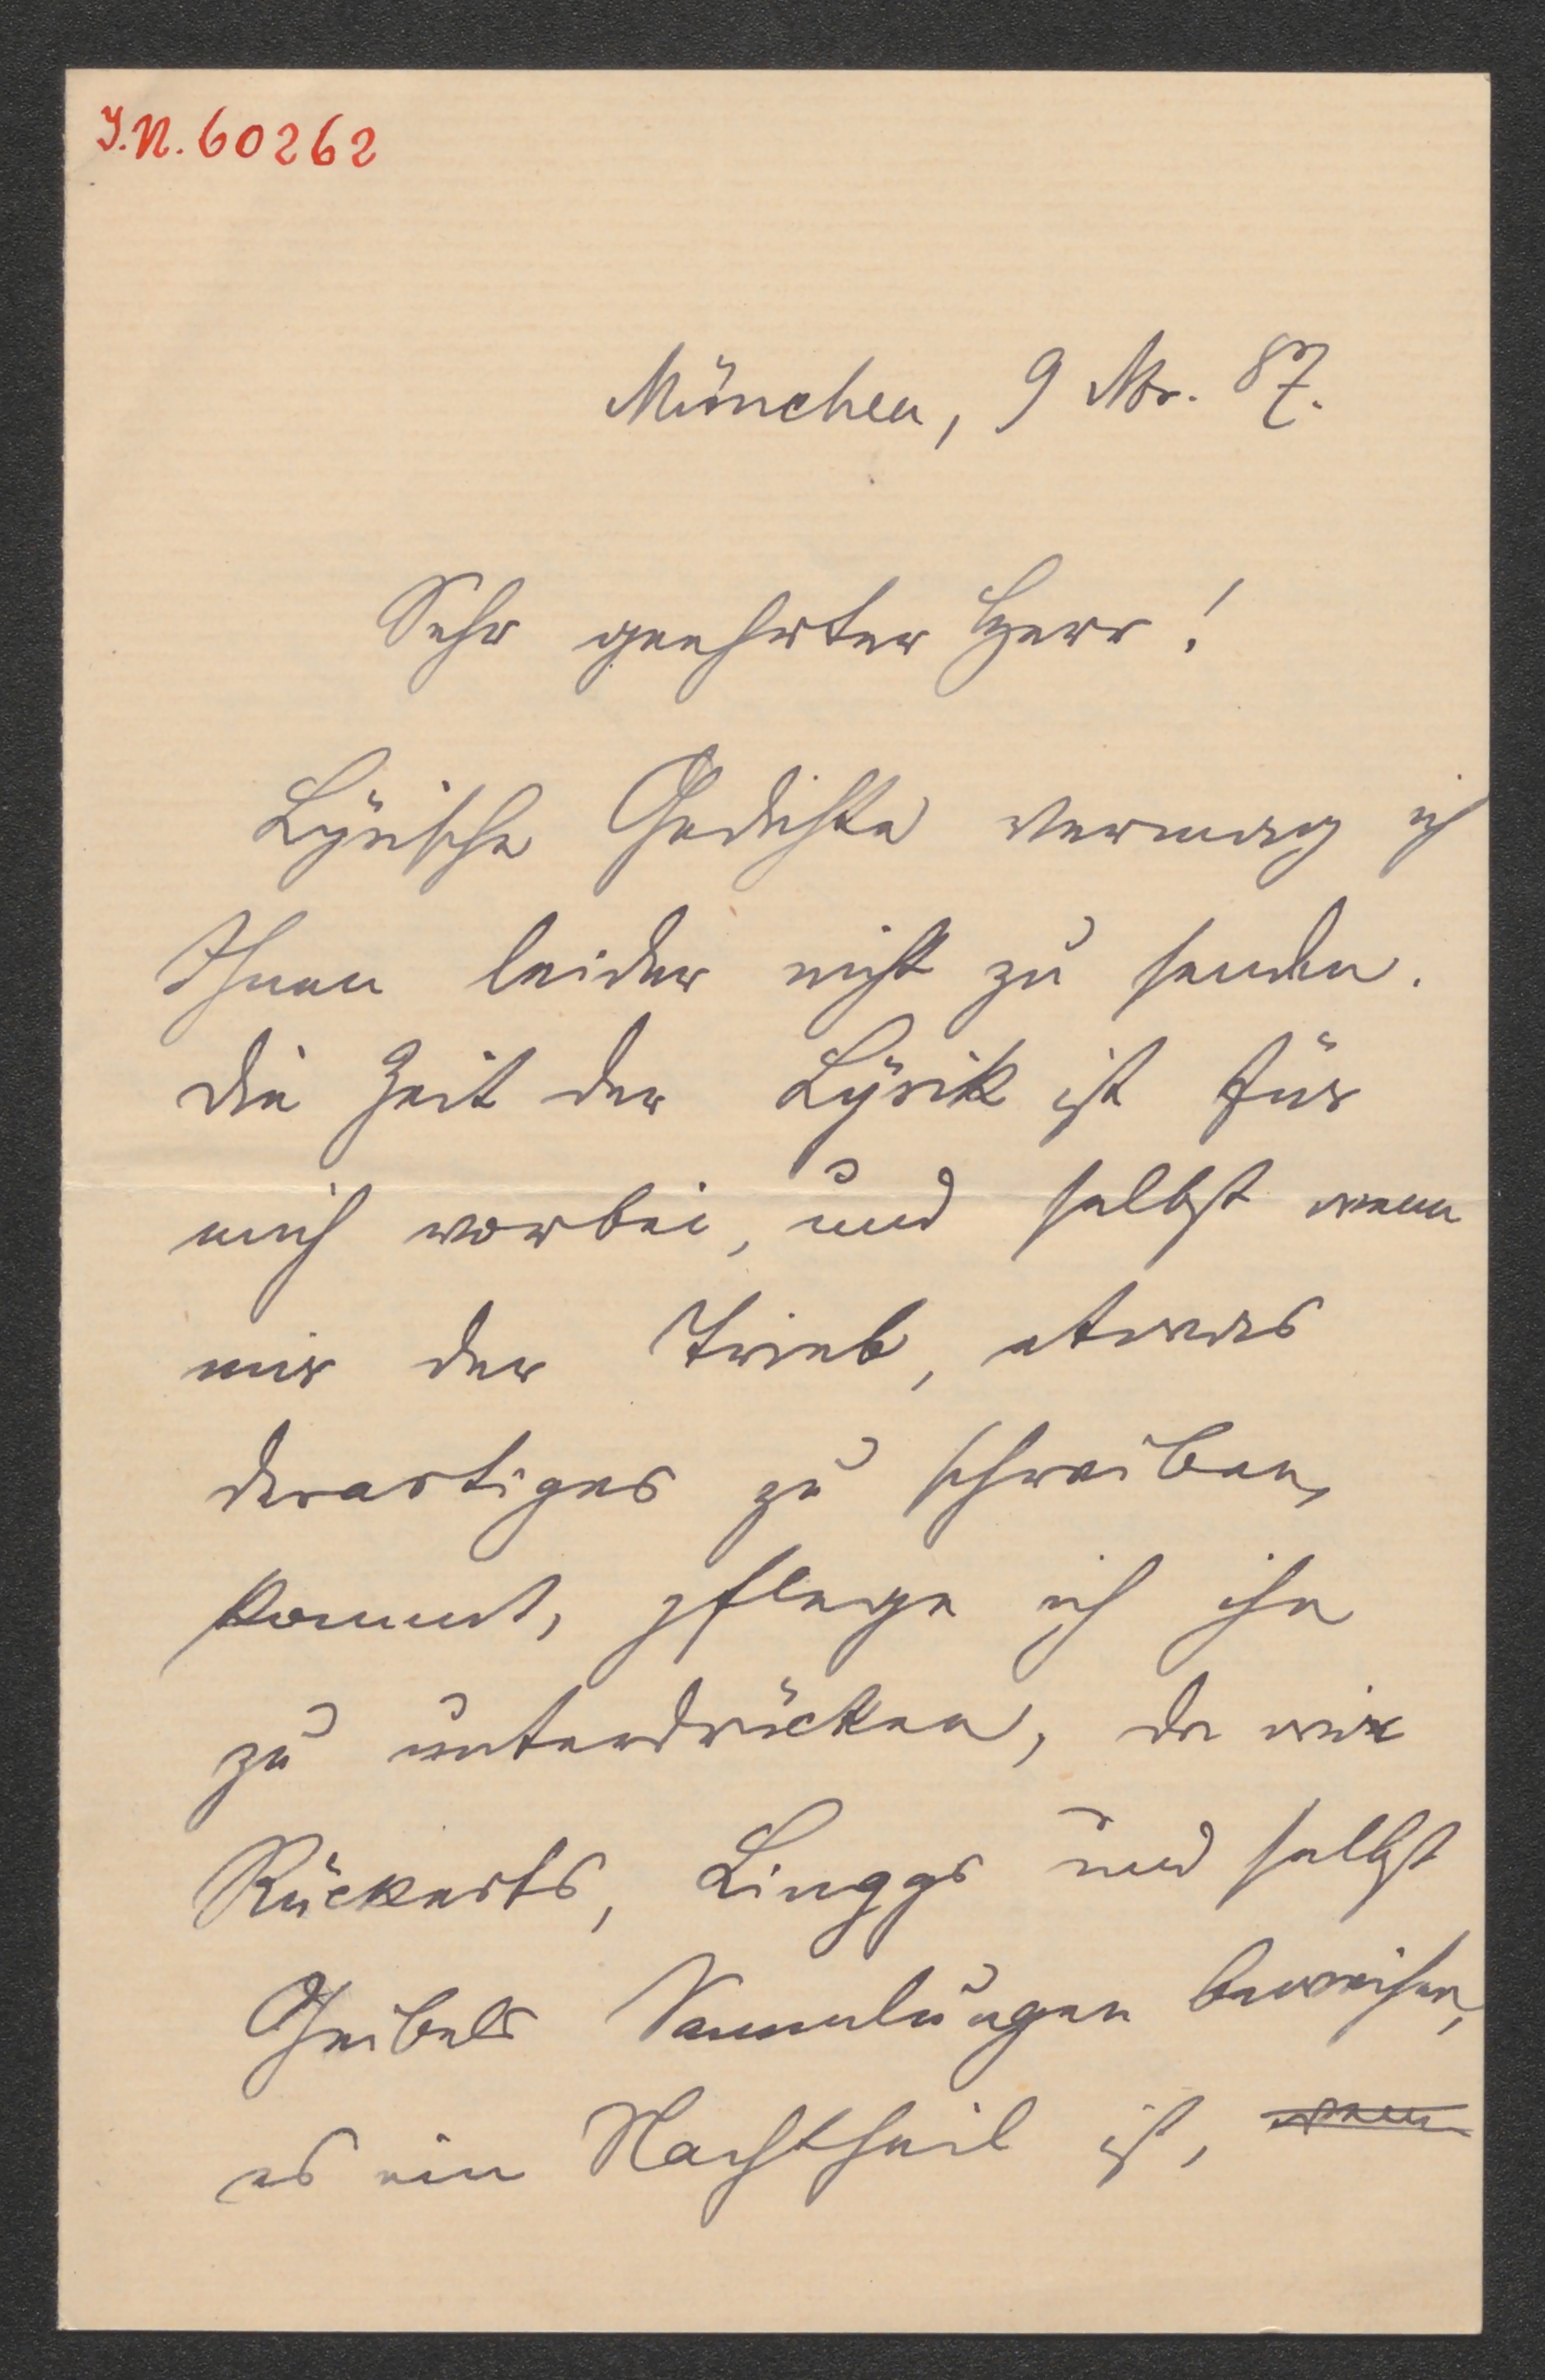 J.N. 60262
München, 9 Nbr. 87.
Sehr geehrter Herr!
Lÿrische Gedichte vermag ich
Ihnen leider nicht zu senden.
Die Zeit der Lÿrik ist für
mich vorbei, und selbst wenn
mir der Trieb, etwas
derartiges zu schreiben,
kommt, pflege ich ihn
zu unterdrücken, da wie
Rückerts, Linggs und selbst
Geibels Sammlungen beweisen,
es ein Nachtheil ist, wenn